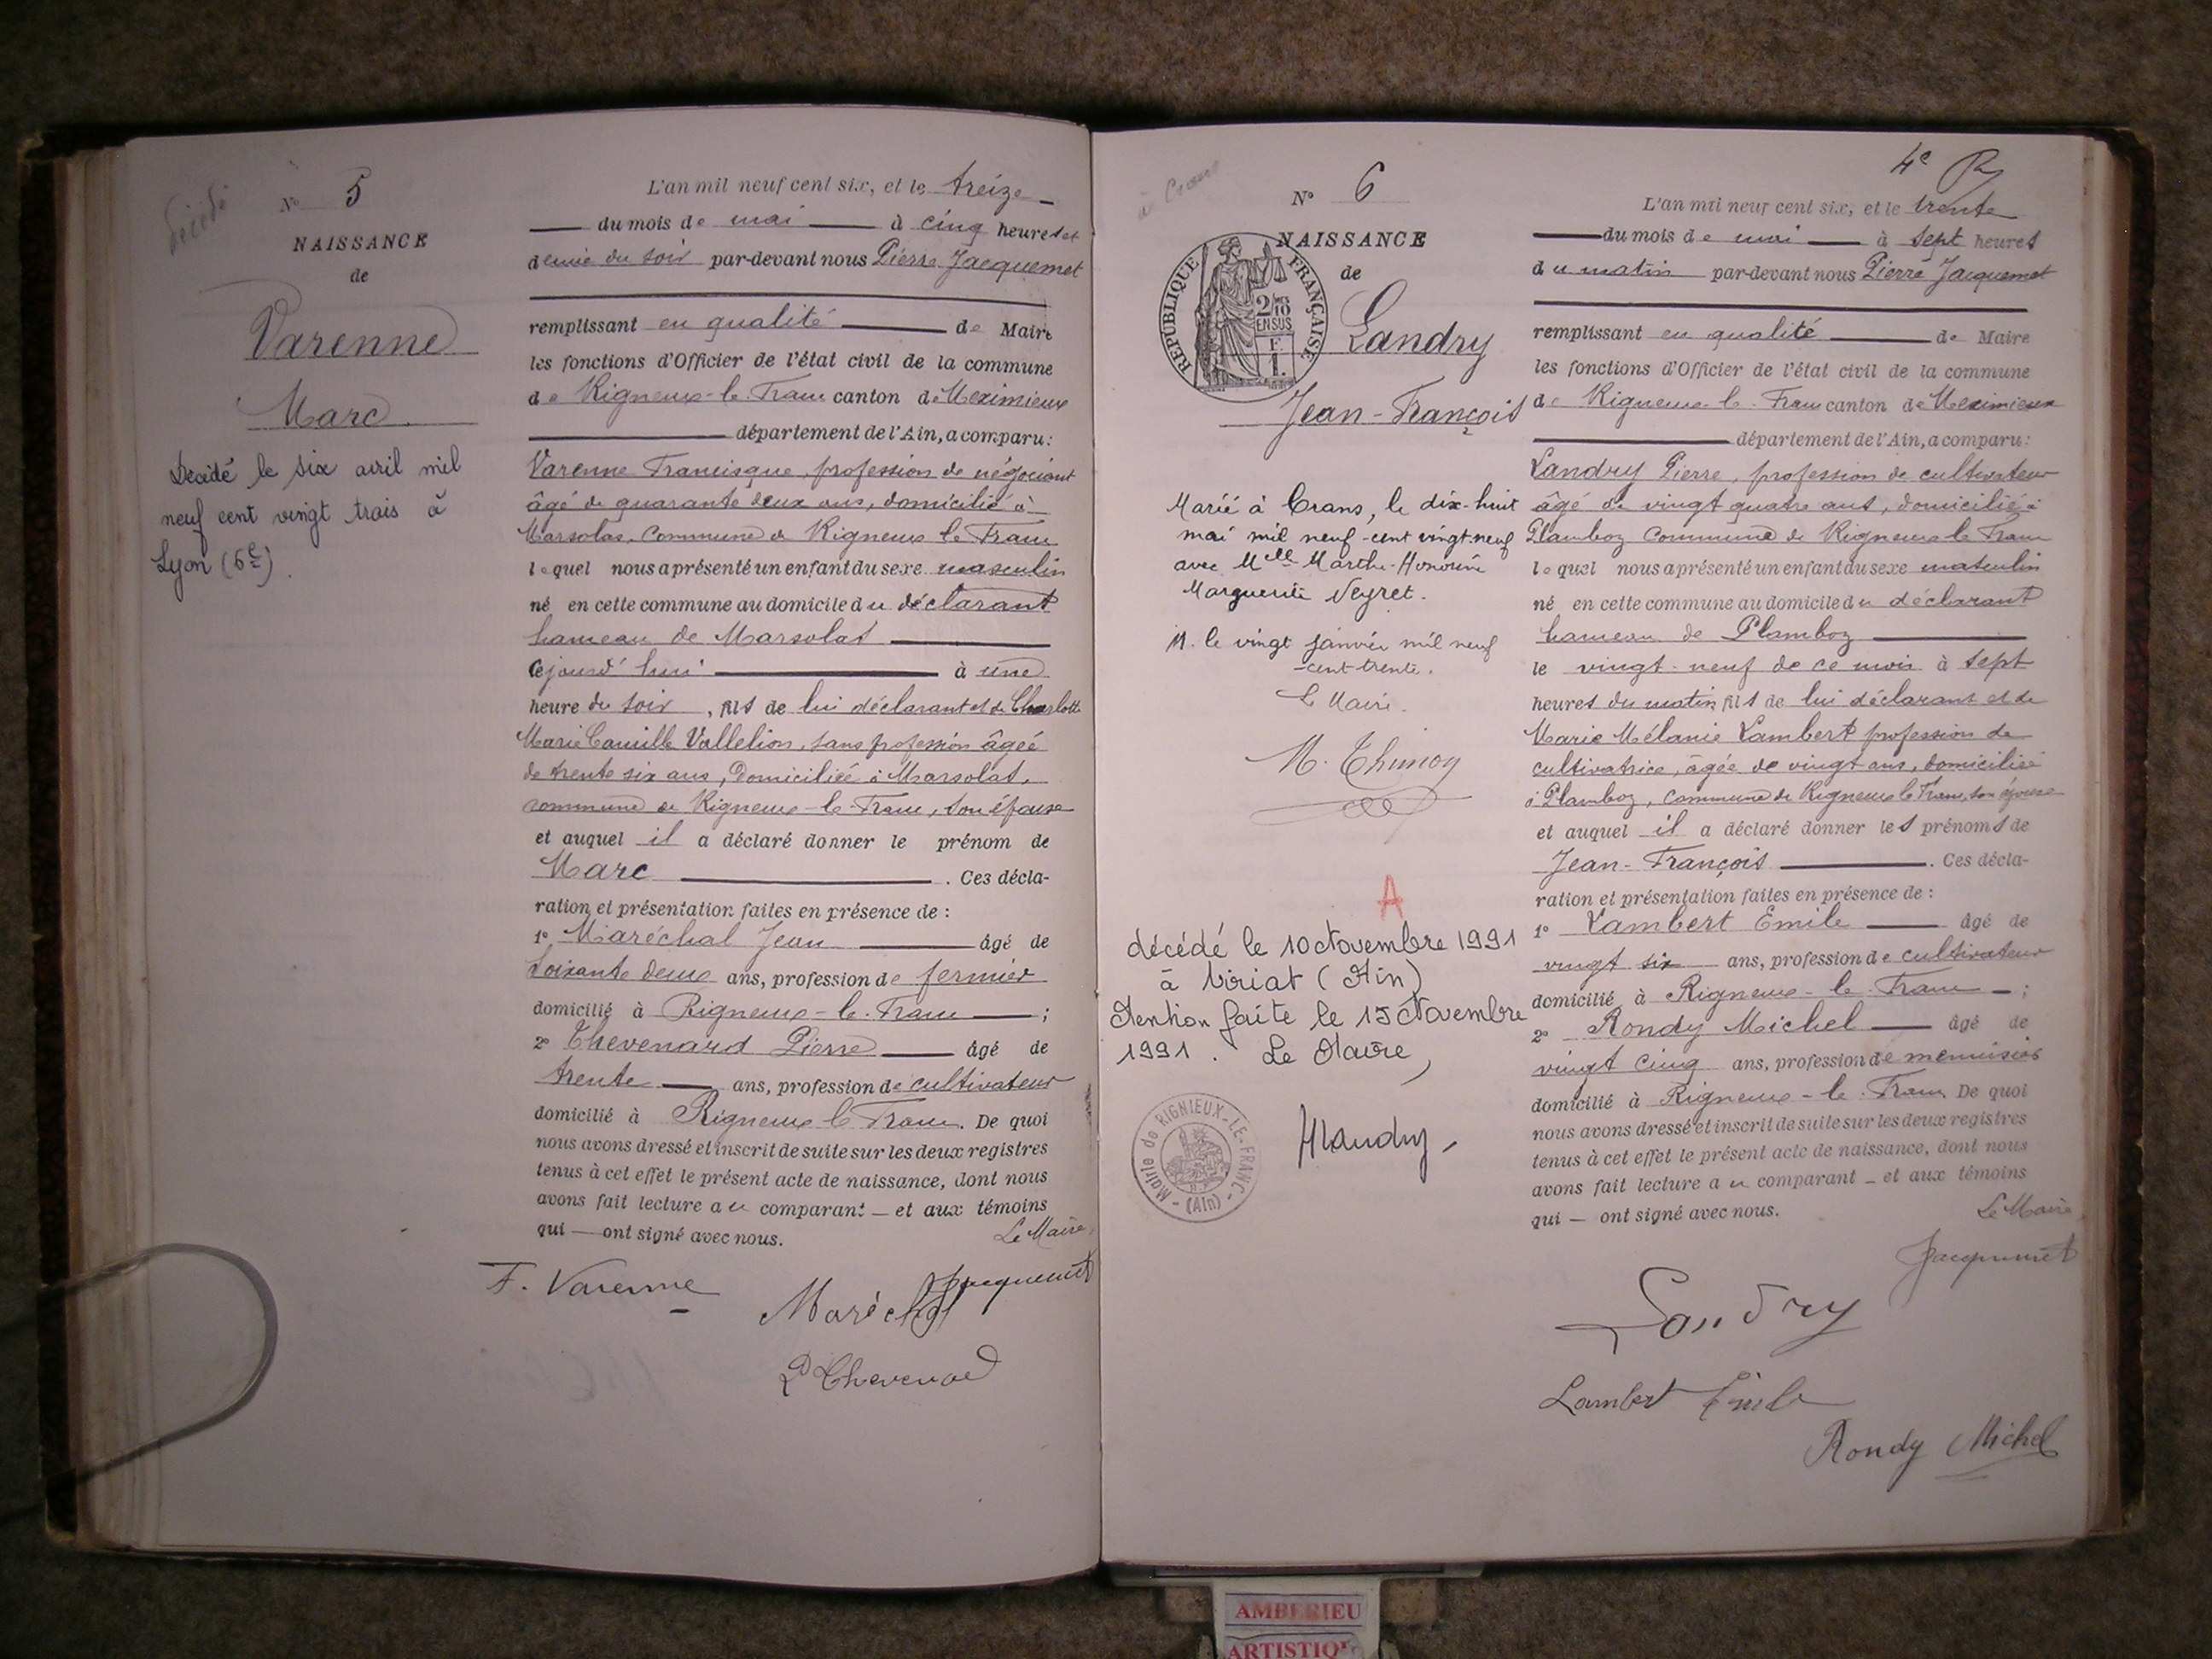 Décédé
N° 5
NAISSANCE
de
Varenne
Marc
Décédé le six avril mil
neuf cent vingt trois à
Lyon (6e).
L'an mil neuf cent six, et le treize
du mois de mai à cinq heures et
demie du soir par-devant nous Pierre Jacquemet
remplissant en qualité de Maire
les fonctions d'Officier de l'état civil de la commune
de Rigneux-le-Franc canton de Meximieux
département de l'Ain, a comparu:
Varenne Francisque, profession de négociant
âgé de quarante deux ans, domicilié à
Marsolas, Commune de Rigneux le Franc
lequel nous a présenté un enfant du sexe masculin
né en cette commune au domicile du déclarant
hameau de Marsolas
cejourd'hui à une
heure du soir, fils de lui déclarant et de Charlotte
Marie Camille Vallelion, sans profession âgée
de trente six ans, Domiciliée à Marsolas,
commune de Rigneux-le-Franc, son épouse
et auquel il a déclaré donner le prénom de
Marc. Ces décla-
ration et présentation faites en présence de :
1° Maréchal Jean âgé de
soixante deux ans, profession de fermier
domicilié à Rigneux-le-Franc ;
2° Thevenard Pierre âgé de
trente ans, profession de cultivateur
domicilié à Rigneux le Franc. De quoi
nous avons dressé et inscrit de suite sur les deux registres
tenus à cet effet le présent acte de naissance, dont nous
avons fait lecture au comparant et aux témoins
qui ont signé avec nous.
Le Maire
F. Varenne Maréchal Jacquemet
P Thevenard
4e
N° 6
NAISSANCE
de
Landry
Jean-François
RÉPUBLIQUE FRANÇAISE
2/10 EN SUS
1 F.
Marié à Crans, le dix-huit
mai mil neuf-cent vingt-neuf
avec Melle Marthe-Honorine
Marguerite Neyret.
M. le vingt janvier mil neuf
-cent-trente.
Le Maire.
M. Thimon
A
décédé le 10 Novembre 1991
à Viriat (Ain)
Mention faite le 15 Novembre
1991. Le Maire,
Mairie de RIGNIEUX-LE-FRANC - (Ain)
HLandry
L'an mil neuf cent six, et le trente
du mois de mai à sept heures
du matin par-devant nous Pierre Jacquemet
remplissant en qualité de Maire
les fonctions d'Officier de l'état civil de la commune
de Rigneux-le-Franc canton de Meximieux
département de l'Ain, a comparu:
Landry Pierre, profession de cultivateur
âgé de vingt quatre ans, domicilié à
Plamboz Commune de Rigneux-le Franc
lequel nous a présenté un enfant du sexe masculin
né en cette commune au domicile du déclarant
hameau de Plamboz
le vingt-neuf de ce mois à sept
heures du matin fils de lui déclarant et de
Marie Mélanie Lambert profession de
cultivatrice, âgée de vingt ans, domiciliée
à Plamboz, commune de Rigneux le Franc, son épouse
et auquel il a déclaré donner les prénoms de
Jean-François. Ces décla-
ration et présentation faites en présence de :
1° Lambert Emile âgé de
vingt six ans, profession de cultivateur
domicilié à Rigneux-le-Franc ;
2° Rondy Michel âgé de
vingt cinq ans, profession de menuisier
domicilié à Rigneux-le-Franc. De quoi
nous avons dressé et inscrit de suite sur les deux registres
tenus à cet effet le présent acte de naissance, dont nous
avons fait lecture au comparant et aux témoins
qui ont signé avec nous.
Le Maire
Jacquemet
Landry
Lambert Emile
Rondy Michel
AMBERIEU
ARTISTIQ